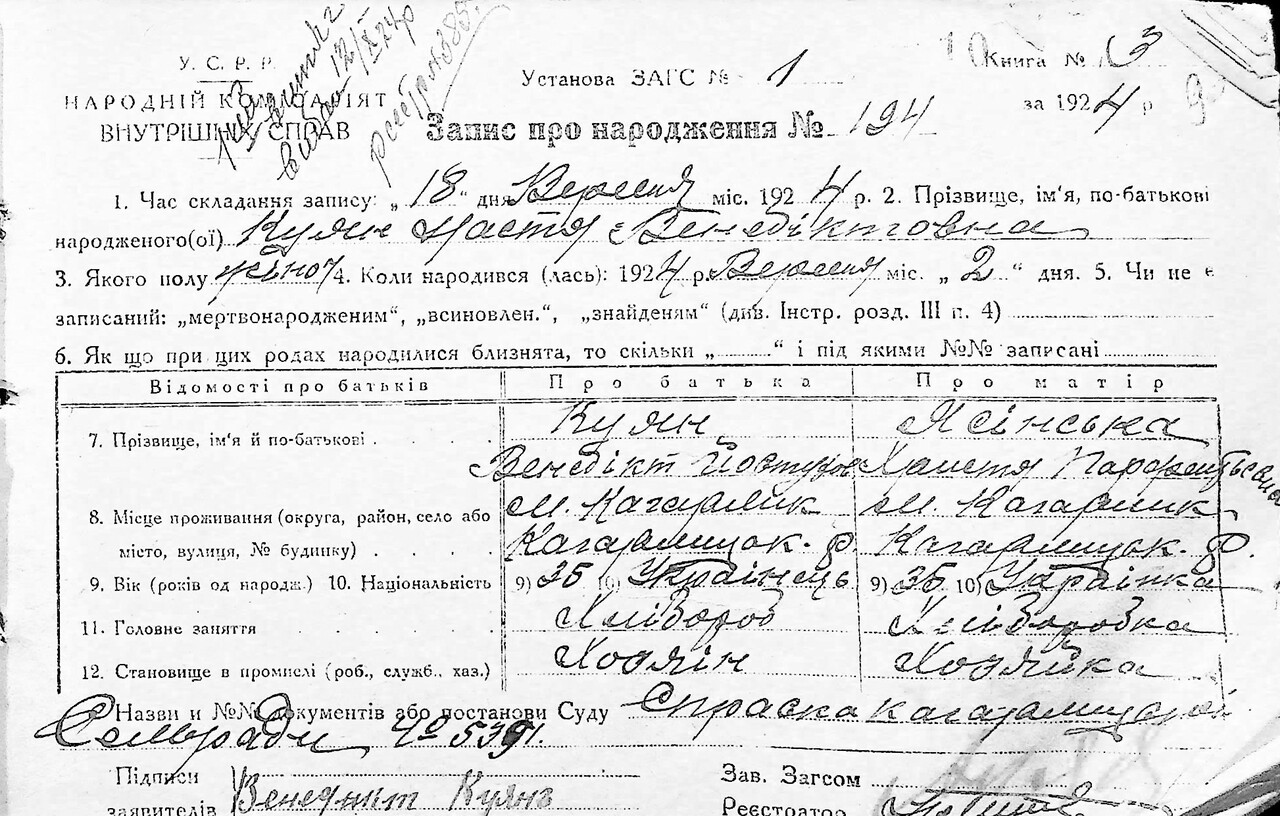 У. С. Р. Р.
НАРОДНІЙ КОМІСАРІЯТ
ВНУТРІШНІХ СПРАВ
видано 12/IX 24 р
реестр. № 385.
Установа ЗАГС № 1
Книга № 3
за 1924 р
Запис про народження № 194
1. Час складання запису: „18" дня Вересня міс. 1924 р. 2. Прізвище, ім'я, по-батькові
народженого(ої) Куян Настя Венедіктовна
3. Якого полу жіноч 4. Коли народився (лась): 1924 р. Вересня міс. „2" дня. 5. Чи не є
записаний: „мертвонародженим", „всиновлен.", „знайденям" (див. Інстр. розд. III п. 4)
6. Як що при цих родах народилися близнята, то скільки „ " і під якими №№ записані
Відомості про батьків Про батька Про матір
7. Прізвище, ім'я й по-батькові Куян Ясінська
Венедікт Христя
8. Місце проживання (округа, район, село або м. Кагарлик м. Кагарлик
місто, вулиця, № будинку) Кагарлицьк. р. Кагарлицьк. р.
9. Вік (років од народж.) 10. Національність 9) 35 10) Українець 9) 35 10) Українка
11. Головне заняття Хлібороб Хліборобка
12. Становище в промислі (роб., служб., хаз.) Хозяін Хозяйка
Назви и №№ документів або постанови Суду Справка Кагарлицької
Сельради № 539.
Підписи Зав. Загсом
заявителів Венедикт Куянъ Реєстратор